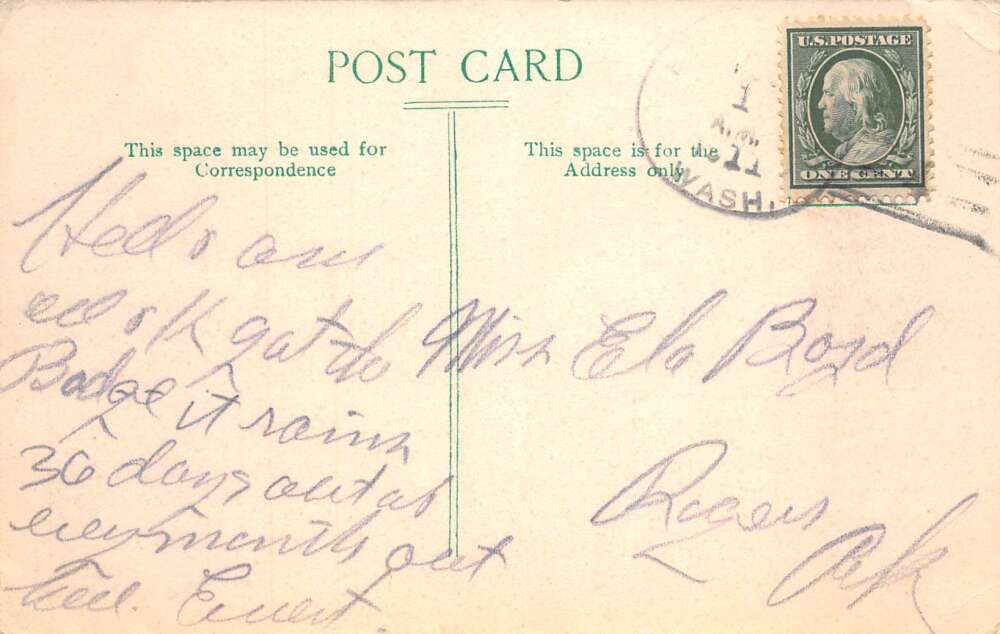 POST CARD
This space may be used for
Correspondence
This space is for the
Address only
U.S. POSTAGE
ONE CENT
1
A.M.
1911
WASH.
am
ok gat to
Badge it rains
36 days out of
every month out
heer. Evert.
Miss Ela Boyd
Rogers
Ark